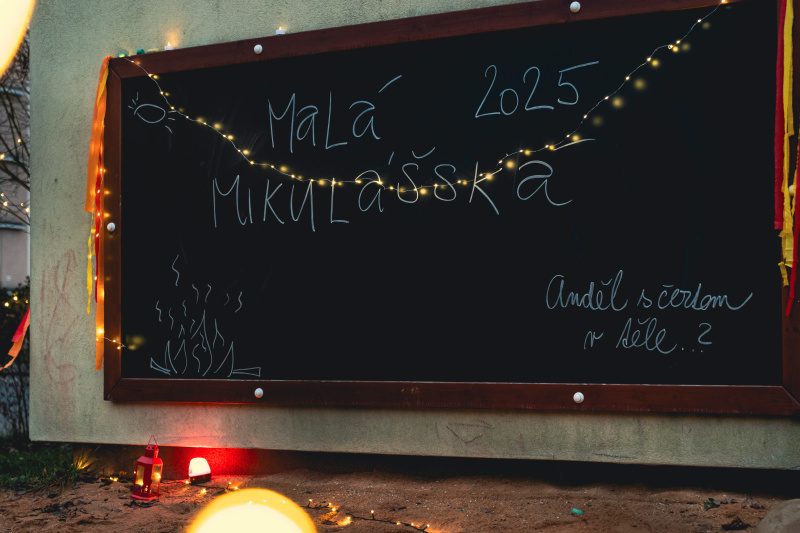 MaLá 2025
MIKULÁŠSKA
Anděl s čertem
v těle...?